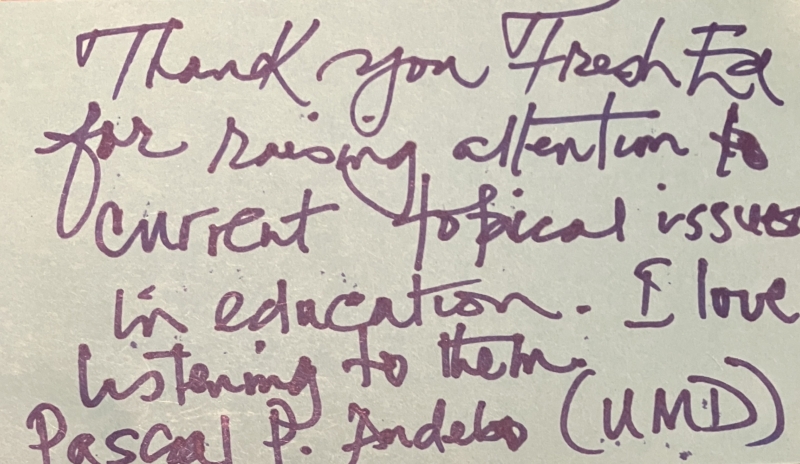 Thank you Fresh Ed
for raising attention to
current topical issues
in education. I love
listening to them.
Pascal P. Andebo (UMD)